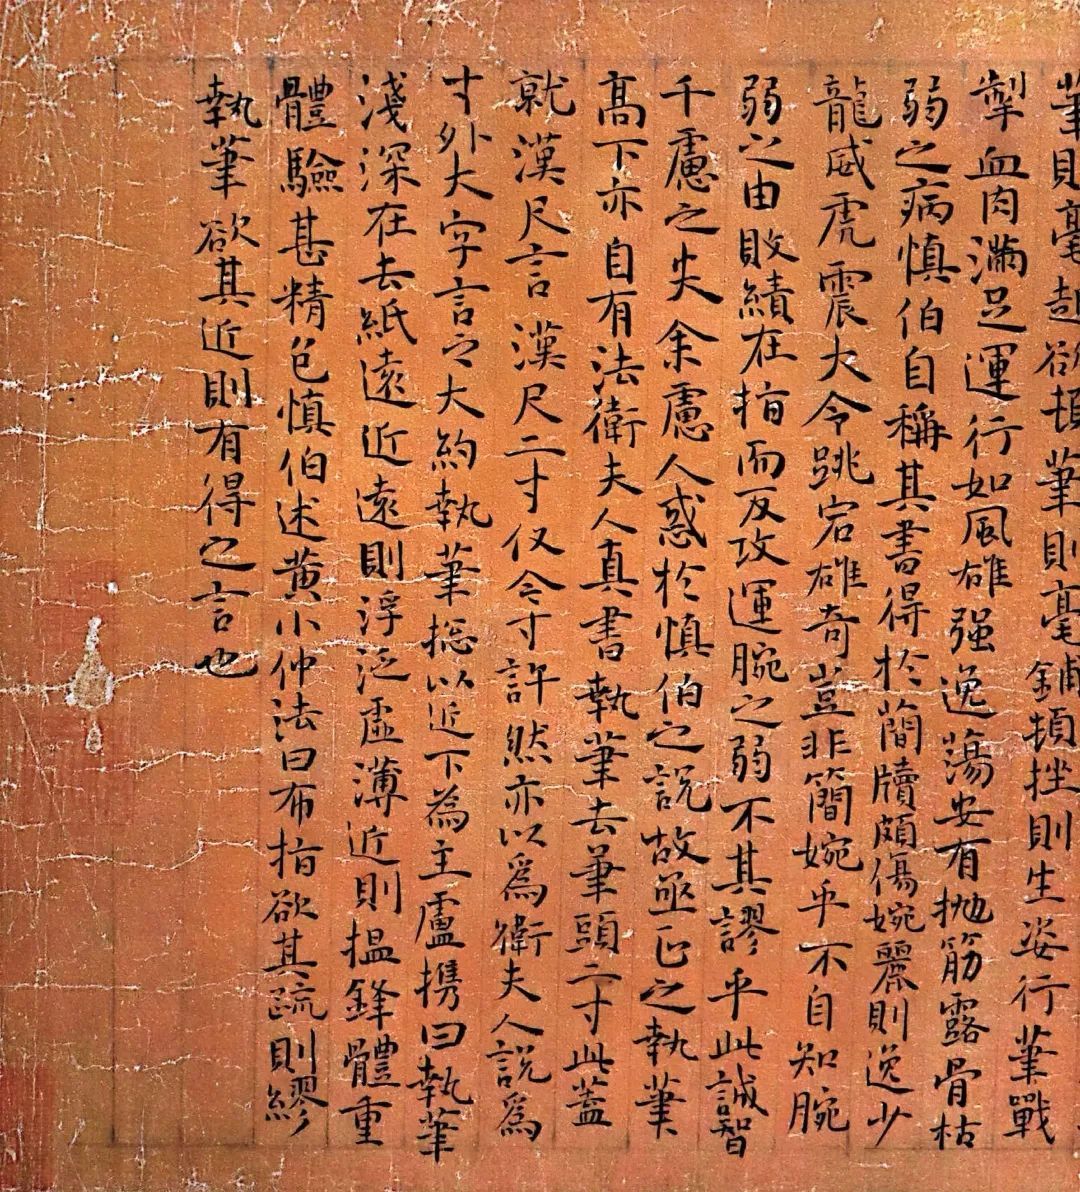 筆則毫起欲頓筆則毫鋪頓挫則生姿行筆戰
掣血肉滿足運行如風雄强逸蕩安有拋筋露骨枯
弱之病慎伯自稱其書得於蘭牘頗傷婉麗則逸少
龍威虎震大令跳宕雄奇豈非簡婉乎不自知腕
弱之由敗績在指而反攻運腕之弱不其謬乎此誠智
千慮之失余慮人惑於慎伯之說故亟正之執筆
高下亦自有法衛夫人真書執筆去筆頭二寸此蓋
就漢尺言漢尺二寸仅今寸許然亦以爲衛夫人說爲
寸外大字言之大約執筆揔以近下為主盧攜曰執筆
淺深在去紙遠近遠則浮泛虛薄近則揾鋒體重
體驗甚精包慎伯述黃小仲法曰布指欲其疏則繆
執筆欲其近則有得之言也